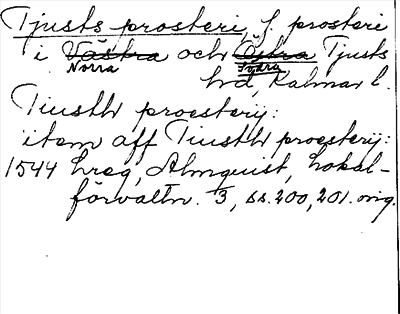 Tjusts prosteri, f. prosteri
i Västra och Östra Tjusts
Norra Södra
hrd, Kalmar l.
Tiusth proesterij:
item aff Tiusth proesterij:
1544 hreg, Almquist, Lokal-
förvaltn. 1/3, ss. 200, 201. orig.